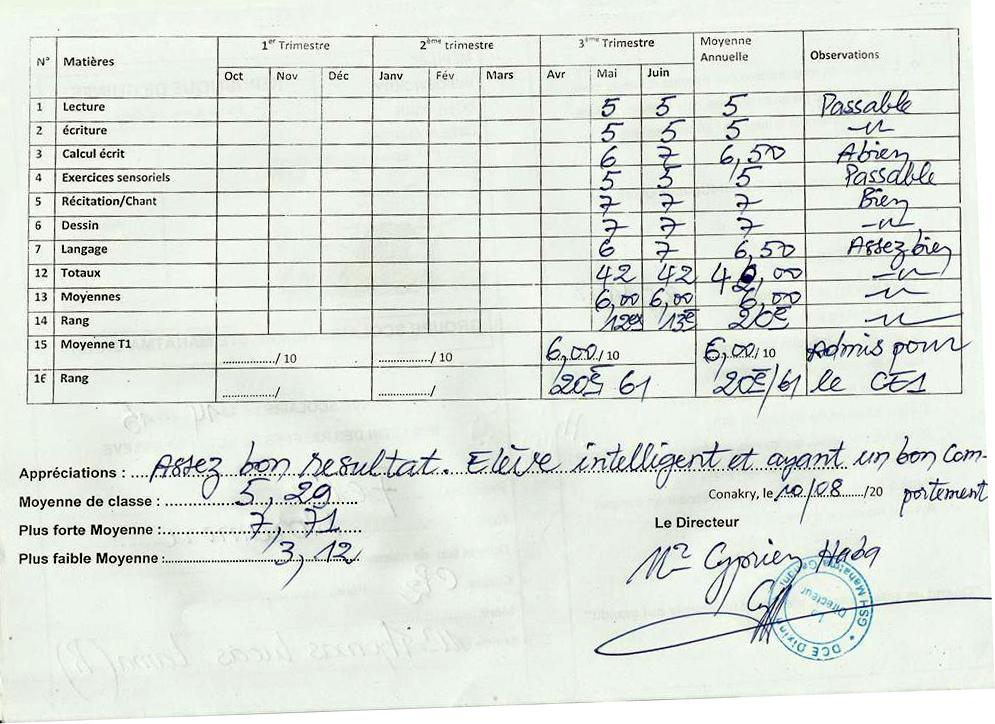 1er Trimestre 2ème trimestre 3ème Trimestre Moyenne Annuelle
N° Matières Observations
Oct Nov Déc Janv Fév Mars Avr Mai Juin
1 Lecture 5 5 5 Passable
2 écriture 5 5 5 -"-
3 Calcul écrit 6 7 6,50 Abien
4 Exercices sensoriels 5 5 5 Passable
5 Récitation/Chant 7 7 7 Bien
6 Dessin 7 7 7 -"-
7 Langage 6 7 6,50 Assez bien
12 Totaux 42 42 42,00 -"-
13 Moyennes 6,00 6,00 6,00 -"-
14 Rang 12e 13e 20e -"-
15 Moyenne T1 ............../ 10 ............../ 10 6,00 / 10 6,00 / 10 Admis pour
16 Rang ............../ ............../ 20e 61 20e/61 le CE1
Appréciations : Assez bon resultat. Elève intelligent et ayant un bon Com-
portement
Moyenne de classe : 5,29
Conakry, le 10/08/20
Plus forte Moyenne : 7,71
Le Directeur
Plus faible Moyenne : 3,12
Mr Cyprien Haba
DCE Dixinn
GSH Mahatma Gandhi
Le Directeur